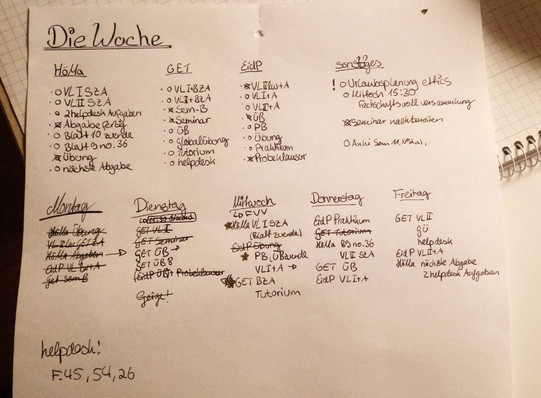 Die Woche
HöMa
o VLI SZA
o VLII SZA
o 2 helpdesk Aufgaben
Abgabe fertig
o Blatt 10 zuende
o Blatt 9 no. 36
Übung
o nächste Abgabe
GET
o VLI+BZA
o VLII+BZA
Sem-B
Seminar
o ÜB
o Globalübung
o Tutorium
o helpdesk
EidP
o VLI+A
o VLII+A
ÜB
o PB
o Übung
o Praktikum
Probeklausur
sonstiges
! o Urlaubsplanung
o Mittwoch 15:30
Fachschaftsvollversammlung
Seminar nachbereiten
o Anki Sem
Montag
HöMa Übung
HöMa
EidP VL
Get Sem B
Dienstag
GET VLI
GET Seminar
GET ÜB
GET ÜB
EidP ÜB + Probeklausur
Geige!
Mittwoch
FVV
HöMa VLI SZA
(Blatt zuende)
EidP Übung
PB, ÜB zuende
VLI+A
GET BZA
Tutorium
Donnerstag
EidP Praktikum
GET Tutorium
HöMa B9 no. 36
VLII SZA
GET ÜB
EidP VLI+A
Freitag
GET VLII
GÜ
helpdesk
EidP VLII+A
HöMa nächste Abgabe
2 helpdesk Aufgaben
helpdesk!
F. 45, 54, 26